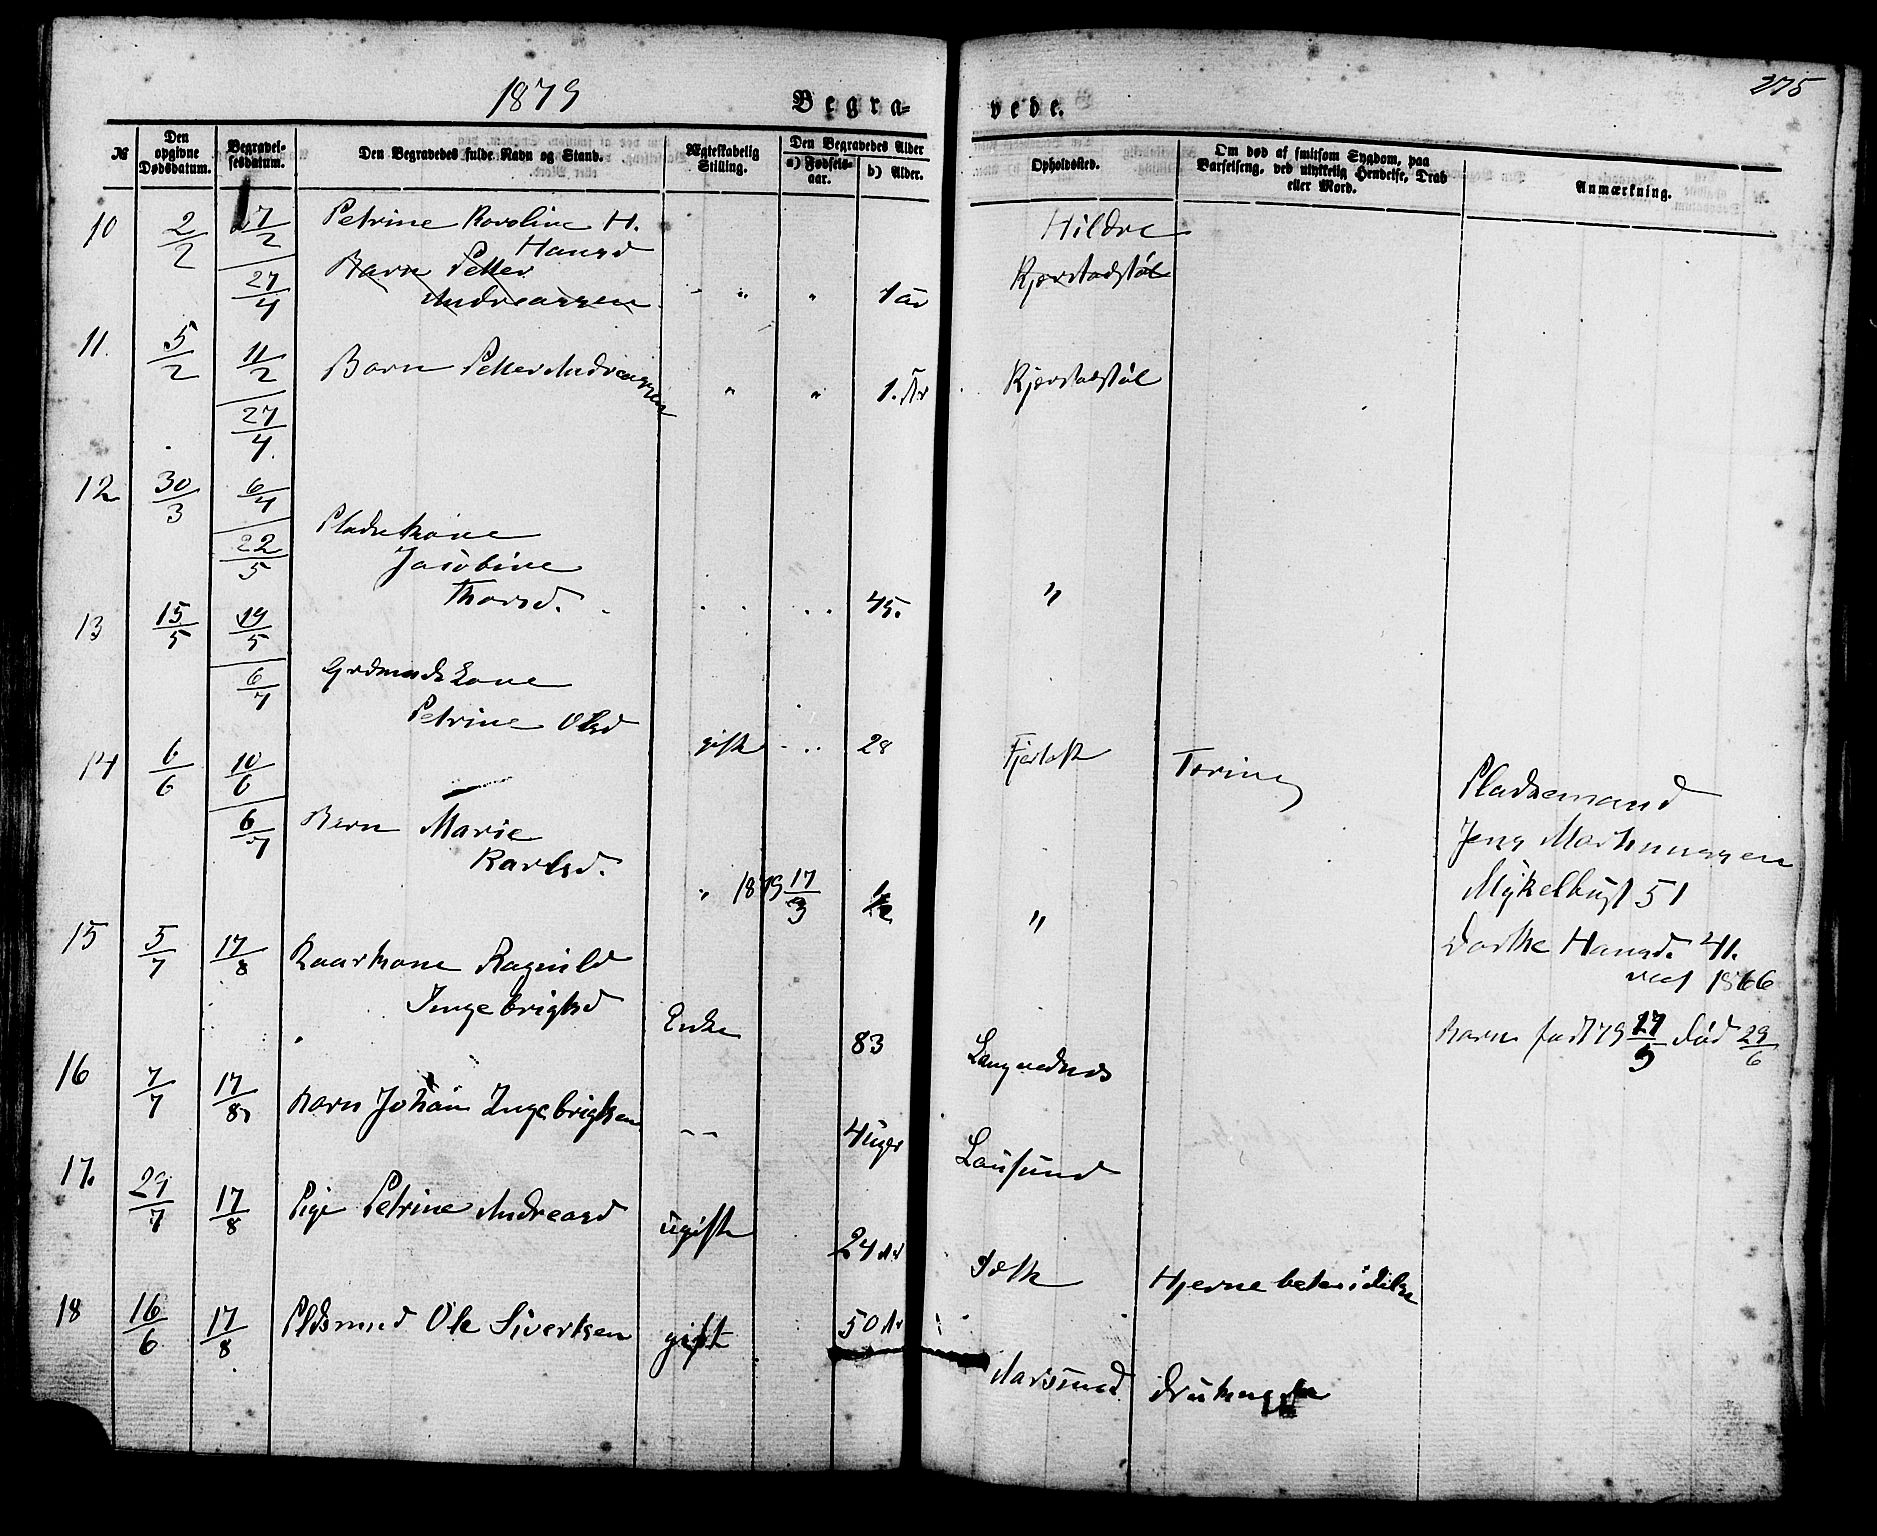 1879
Begra-
vede.
275
№
Den opgivne Dødsdatum.
Begravelsesdatum.
Den Begravedes fulde Navn og Stand.
Ægteskabelig Stilling.
Den Begravedes Alder
a) Fødselsaar.
b) Alder.
Opholdssted.
Om død af smitsom Sygdom, paa Barselseng, ved ulykkelig Hendelse, Drab eller Mord.
Anmærkning.
10 2/2 17/2 Petrine Karoline H. Hildre
Hansd
27/4 Barn Petter Kjærstadstøl
Andreassen " " 1 år
11. 5/2 11/2 Barn Petter Andreassen " " 1. År Kjærstadstøl
27/4
12 30/3 6/4
22/5 Pladskone
Jacobine
Thorsd. 45. "
13 15/5 19/5
6/7 Grdmandskone
Petrine Olsd gift 28 Fjørtoft Tæring
14 6/6 10/6
6/7 Barn Marie
Karlsd. " 1879 17/3 "
Pladsemand
Jens Martinussen
Mykelbust 51
Dorthe Hansd. 41.
viet 1866
Barn født 79 17/3 død 29/6
15 5/7 17/8 Kaarkone Ragnild
Ingebrigtsd Enke 83 Longvednes
16 7/7 17/8 Barn Johan Ingebrigtsen -- 4 uger Lausund
17. 29/7 17/8 Pige Petrine Andreasd ugift 24 År Hjernebetændelse
18 16/6 17/8 Pldsmnd Ole Sivertsen gift 50 År Aarsund